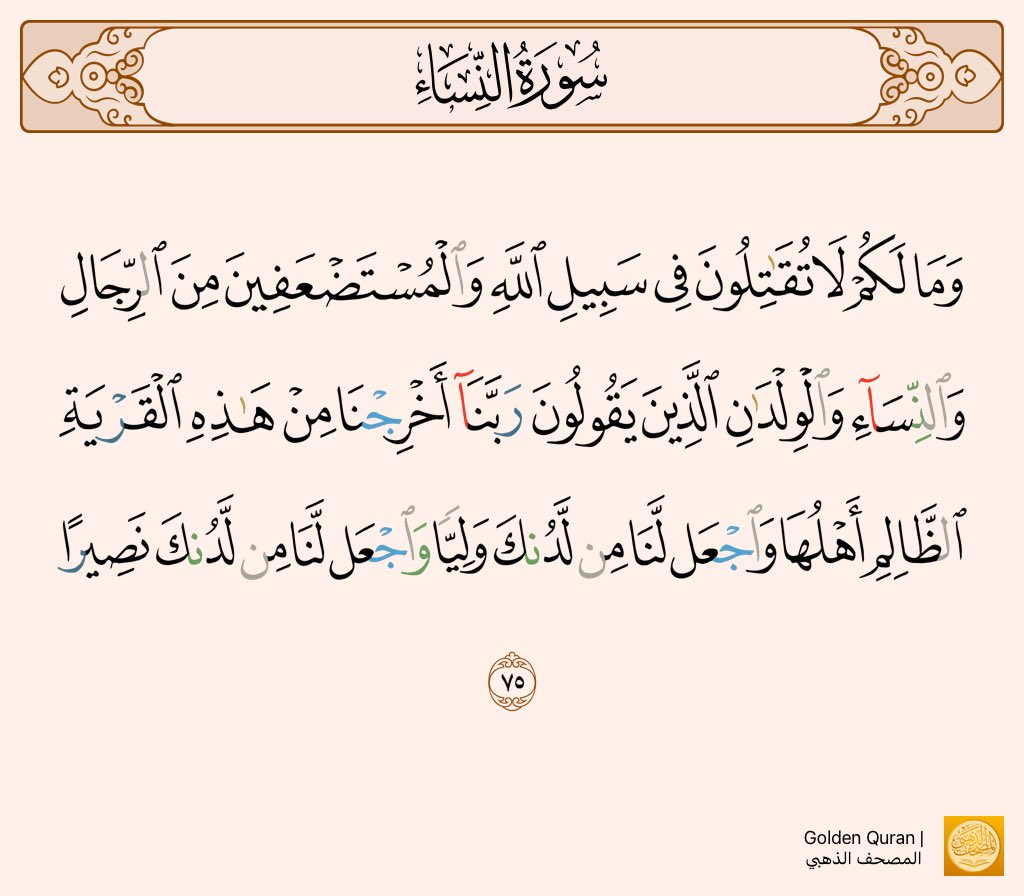 سُورَةُ النِّسَاءِ
وَمَا لَكُمْ لَا تُقَٰتِلُونَ فِى سَبِيلِ ٱللَّهِ وَٱلْمُسْتَضْعَفِينَ مِنَ ٱلرِّجَالِ
وَٱلنِّسَآءِ وَٱلْوِلْدَٰنِ ٱلَّذِينَ يَقُولُونَ رَبَّنَآ أَخْرِجْنَا مِنْ هَٰذِهِ ٱلْقَرْيَةِ
ٱلظَّالِمِ أَهْلُهَا وَٱجْعَل لَّنَا مِن لَّدُنكَ وَلِيًّا وَٱجْعَل لَّنَا مِن لَّدُنكَ نَصِيرًا
٧٥
Golden Quran |
المصحف الذهبي